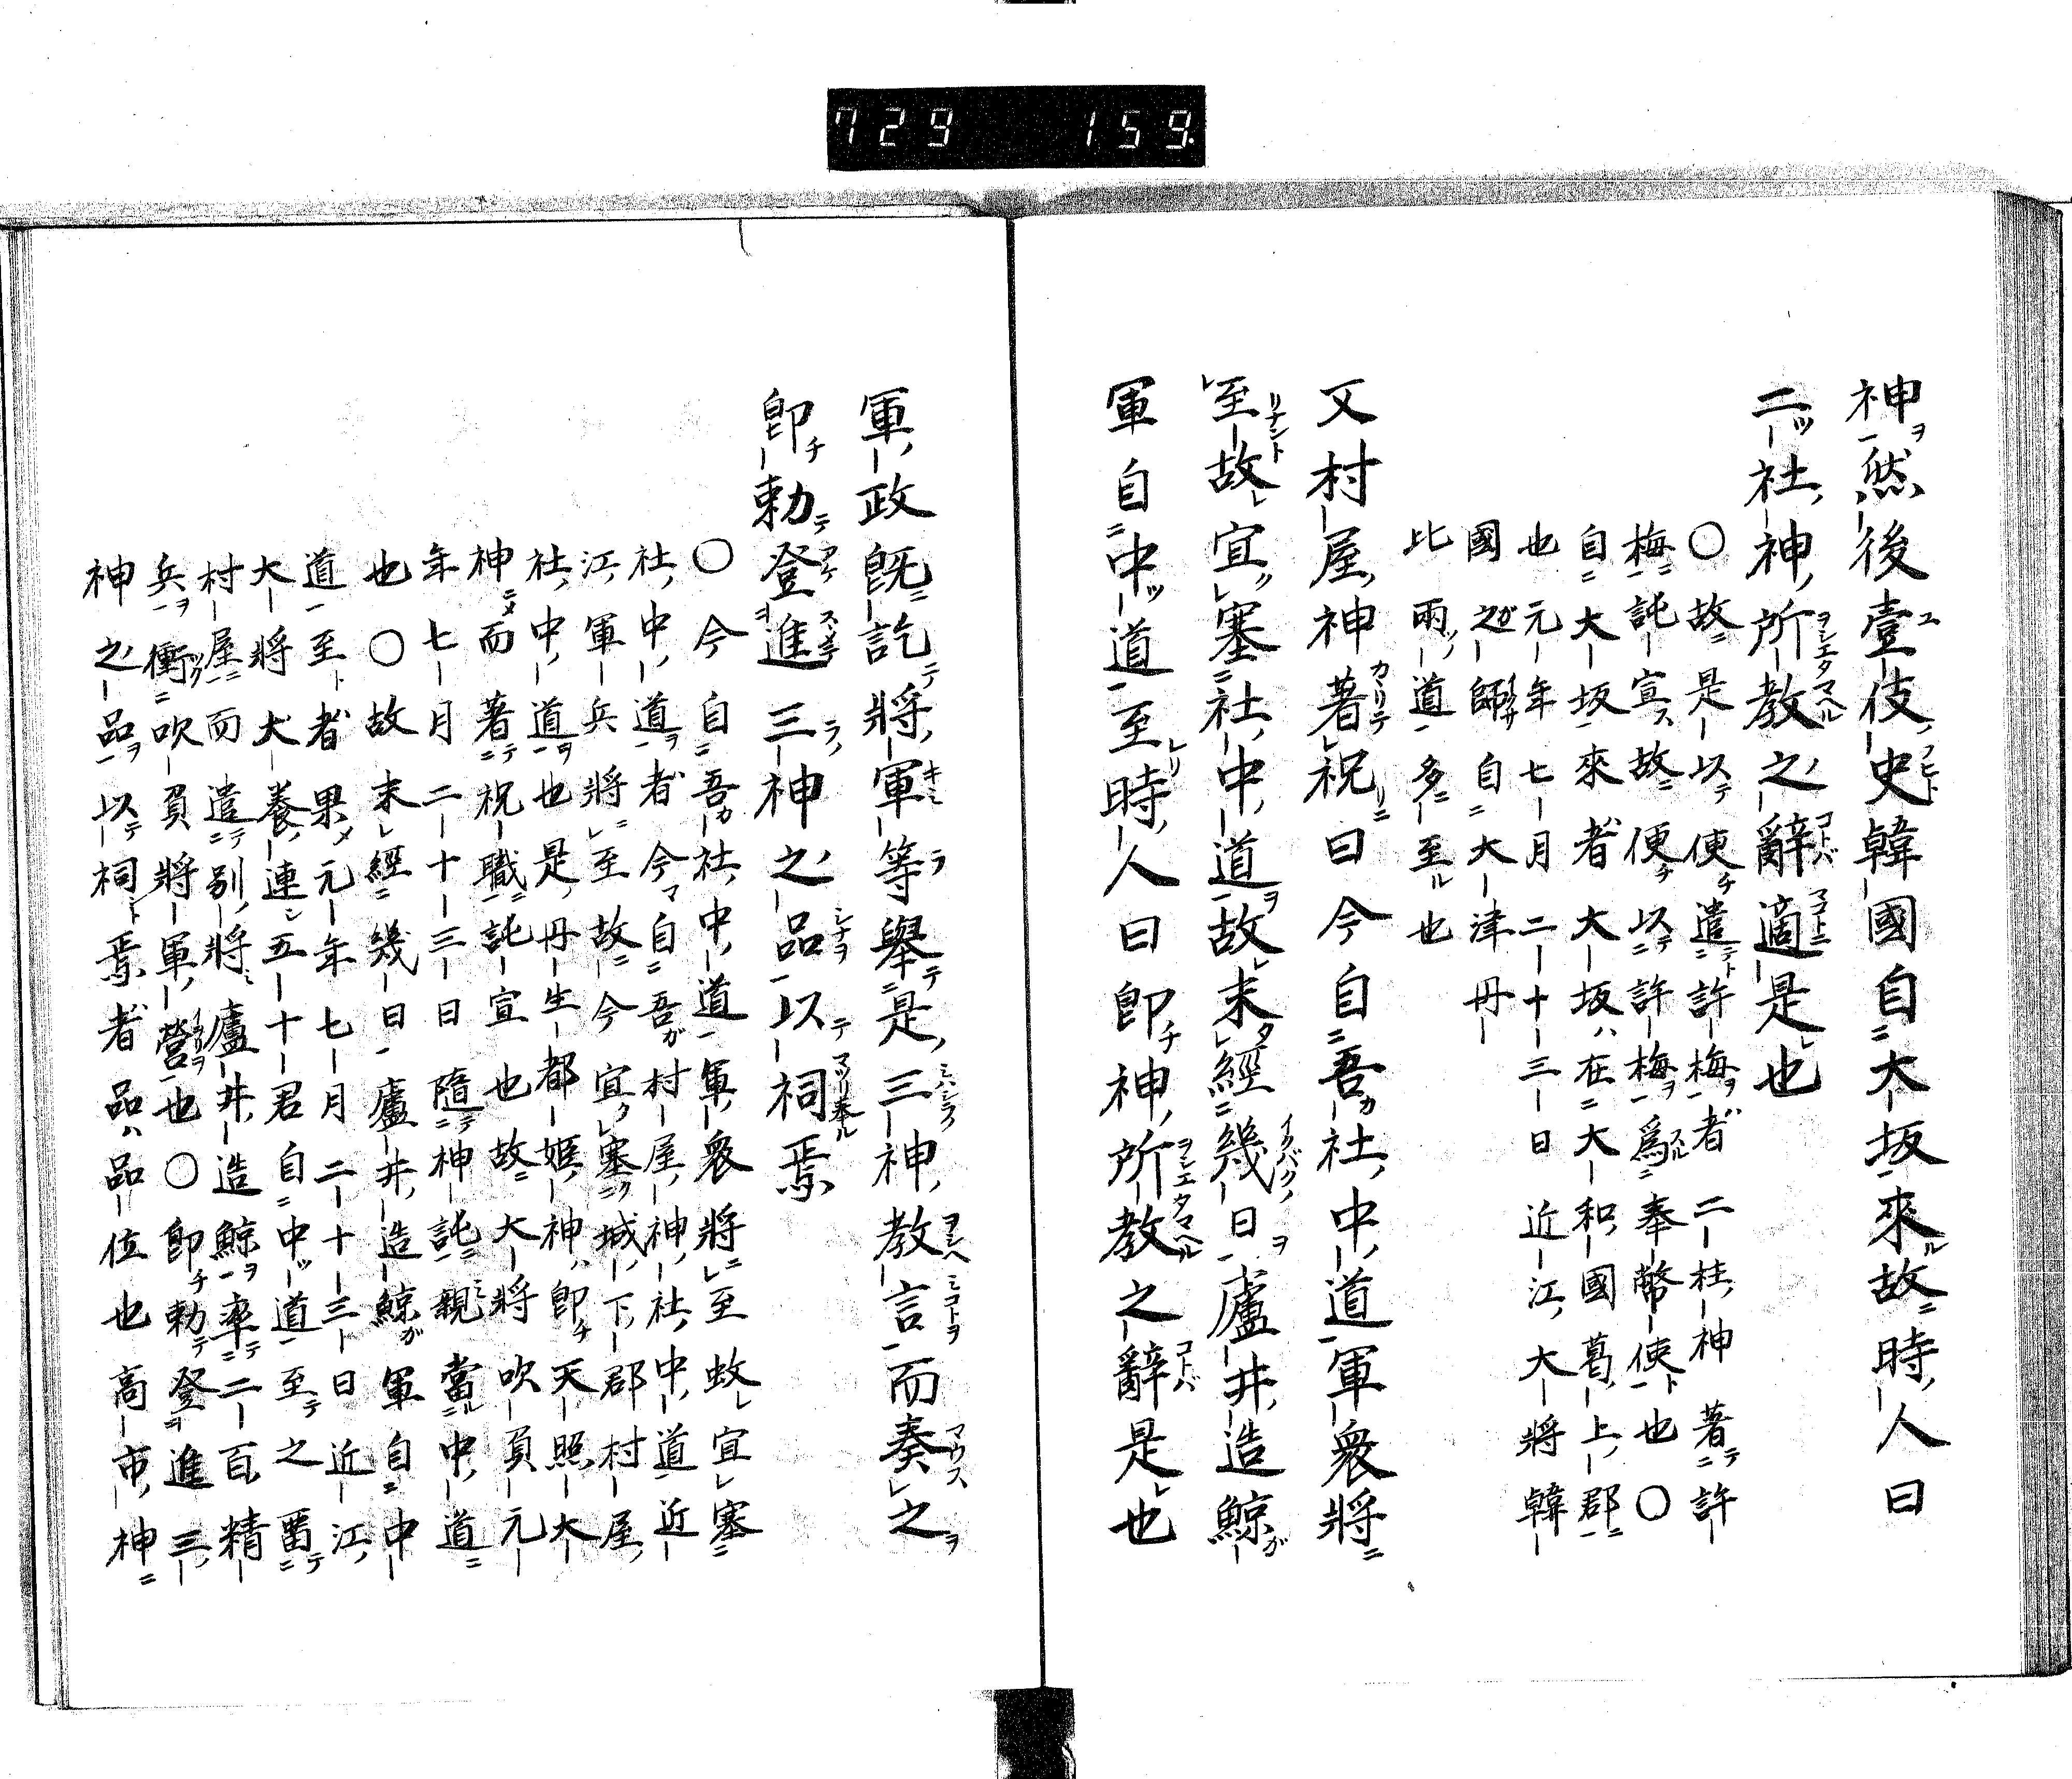 729 159
神然後壹伎史韓國自大坂來故時人曰
二社神所教之辭適是也
〇故是以使遣許梅者二社神著許
梅託宣故便以許梅爲奉幣使也〇
自大坂來者大坂在大和國葛上郡
也元年七月二十三日近江大將韓
國之師自大津丹
比兩道多至也
又村屋神著祝曰今自吾社中道軍衆將
至故宜塞社中道故未經幾日廬井造鯨
軍自中道至時人曰卽神所教之辭是也
軍政既訖將軍等擧是三神教言而奏之
卽勅登進三神之品以祠焉
〇今自吾社中道軍衆將至故宜塞
社中道者今自吾村屋神社中道近
江軍兵將至故今宜塞城下郡村屋
社中道也是丹生都姫神卽天照大
神而著祝職託宣也故大將吹負元
年七月二十三日隨神託親當中道
也〇故未經幾日廬井造鯨軍自中
道至者果元年七月二十三日近江
大將犬養連五十君自中道至之留
村屋而遣別將廬井造鯨率二百精
兵衝吹負將軍營也〇卽勅登進三
神之品以祠焉者品品位也高市神